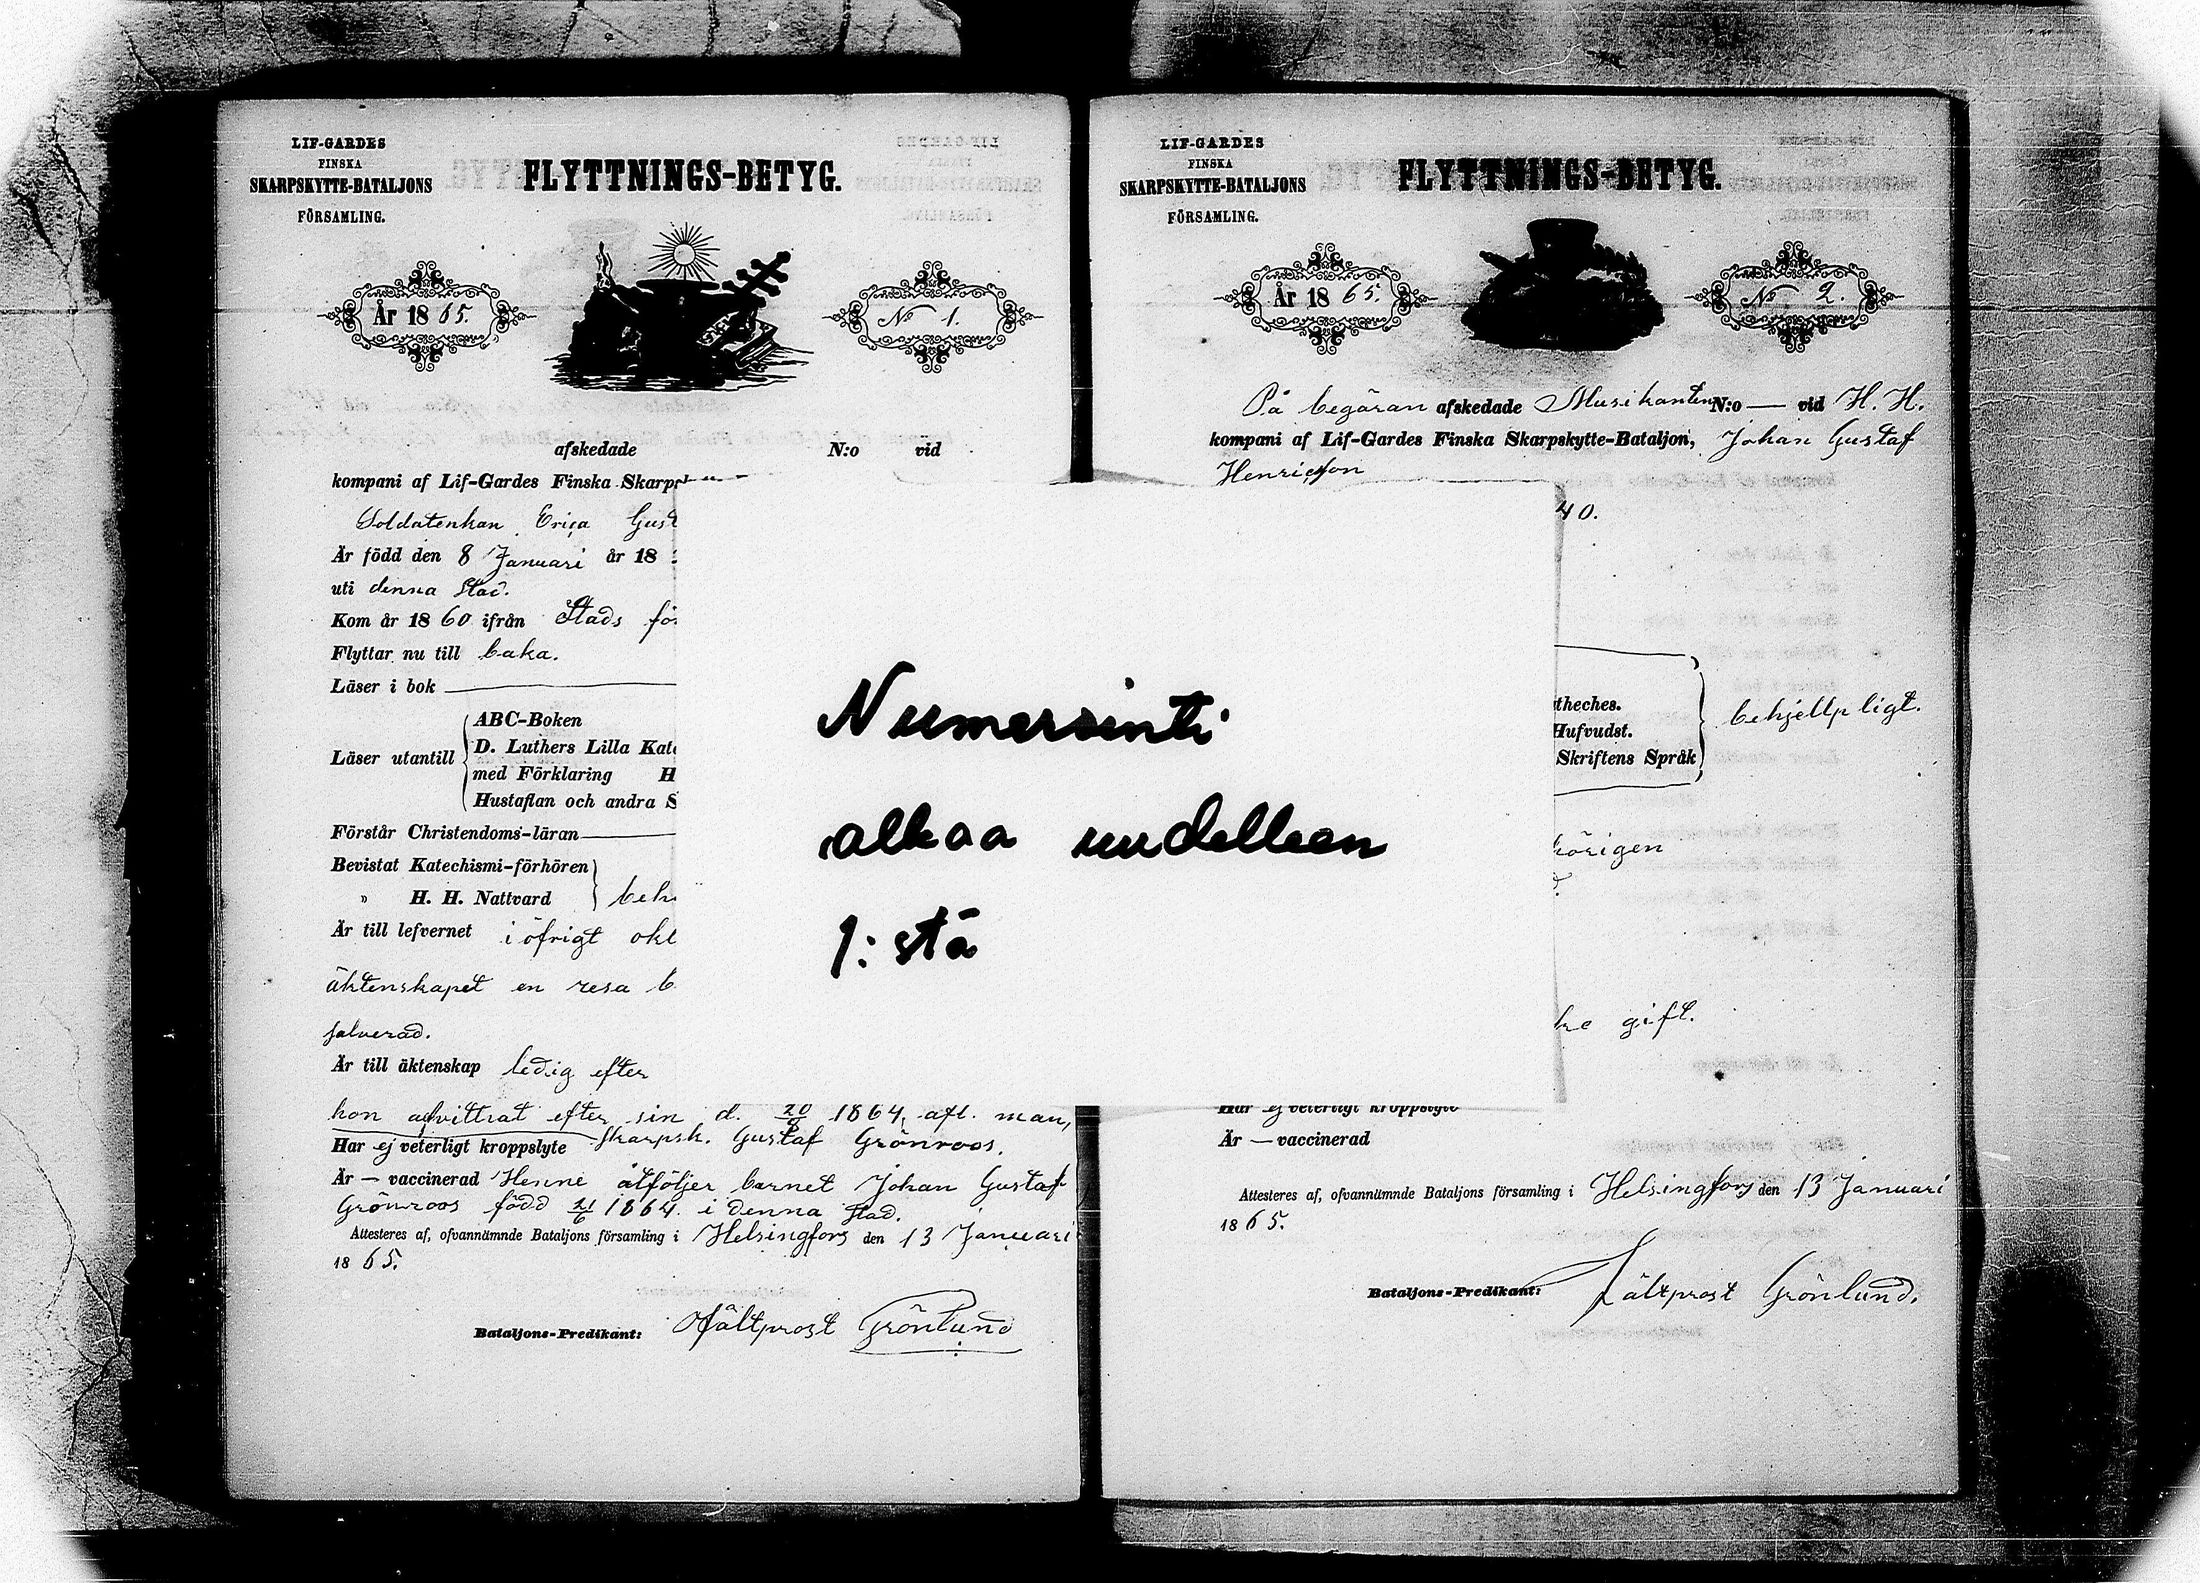 LIF-GARDES
FINSKA
SKARPSKYTTE-BATALJONS
FÖRSAMLING.
FLYTTNINGS-BETYG.
År 18 65.
No 1.
afskedade N:o vid
kompani af Lif-Gardes Finska Skarpsk
Soldatenkan Erica Gust
Är född den 8 Januari år 18
uti denna stad.
Kom år 18 60 ifrån Stads för
Flyttar nu till baka.
Läser i bok
Läser utantill
ABC-Boken
D. Luthers Lilla Kate
med Förklaring H
Hustaflan och andra S
Förstår Christendoms-läran
Bevistat Katechismi-förhören
" H. H. Nattvard
beh
Är till lefvernet i öfrigt okl
äktenskapet en resa b
salverad.
Är till äktenskap ledig efter
hon afvittrat efter sin d. 20/8 1864 afl. man,
Har ej veterligt kroppslyte Skarpsk. Gustaf Grönroos.
Är — vaccinerad Henne åtföljer barnet Johan Gustaf
Grönroos född 21/6 1864 i denna stad.
Attesteres af, ofvannämnde Bataljons församling i Helsingfors den 13 Januari
18 65.
Bataljons-Predikant: Fältprost Grönlund
Numerointi
alkaa uudelleen
1:stä
LIF-GARDES
FINSKA
SKARPSKYTTE-BATALJONS
FÖRSAMLING.
FLYTTNINGS-BETYG.
År 18 65.
No 2.
På begäran afskedade Musikanten N:o — vid H. H.
kompani af Lif-Gardes Finska Skarpskytte-Bataljon, Johan Gustaf
Henricsson
40.
theches.
Hufvudst.
Skriftens Språk
behjellpligt.
hörigen
ke gift.
Har ej veterligt kroppslyte
Är — vaccinerad
Attesteres af, ofvannämnde Bataljons församling i Helsingfors den 13 Januari
18 65.
Bataljons-Predikant: Fältprost Grönlund.